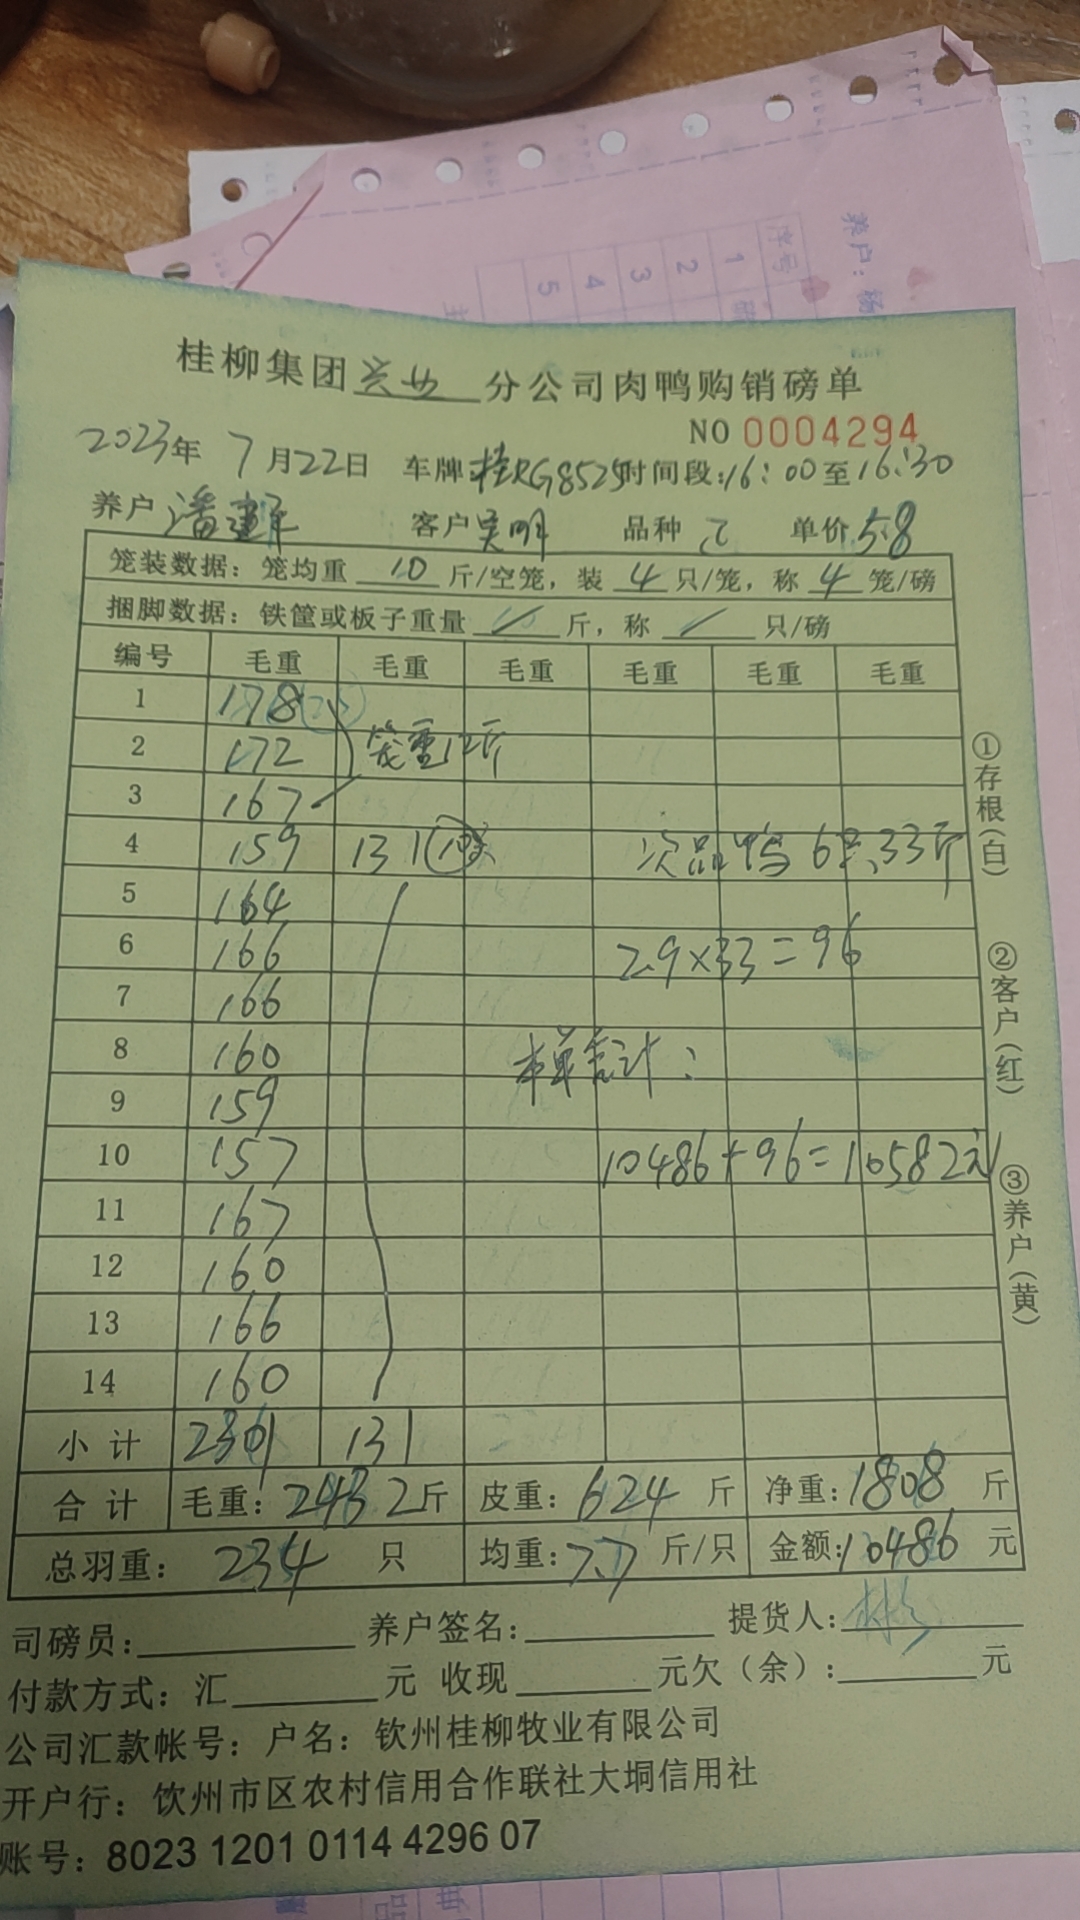 养户：杨
序号 1 2 3 4 5
桂柳集团兴业分公司肉鸭购销磅单
NO 0004294
2023年 7月22日 车牌:桂RG8525 时间段:16:00至16:30
养户 潘建平 客户 吴明 品种 单价 5.8
笼装数据：笼均重 10 斤/空笼，装 4 只/笼，称 4 笼/磅
捆脚数据：铁筐或板子重量 / 斤，称 / 只/磅
编号 毛重 毛重 毛重 毛重 毛重 毛重
1 178
2 172 笼重12斤
3 167
4 159 131 次品鸭6只,33斤
5 164
6 166 2.9×33=96
7 166
8 160 本单合计：
9 159
10 157 10486+96=10582元
11 167
12 160
13 166
14 160
小计 2301 131
合计 毛重：2432斤 皮重：624 斤 净重：1808 斤
总羽重： 234 只 均重：7.7 斤/只 金额：10486 元
①存根(白)
②客户(红)
③养户(黄)
司磅员： 养户签名： 提货人：
付款方式：汇 元 收现 元欠（余）： 元
公司汇款帐号：户名：钦州桂柳牧业有限公司
开户行：饮州市区农村信用合作联社大垌信用社
账号：8023 1201 0114 4296 07